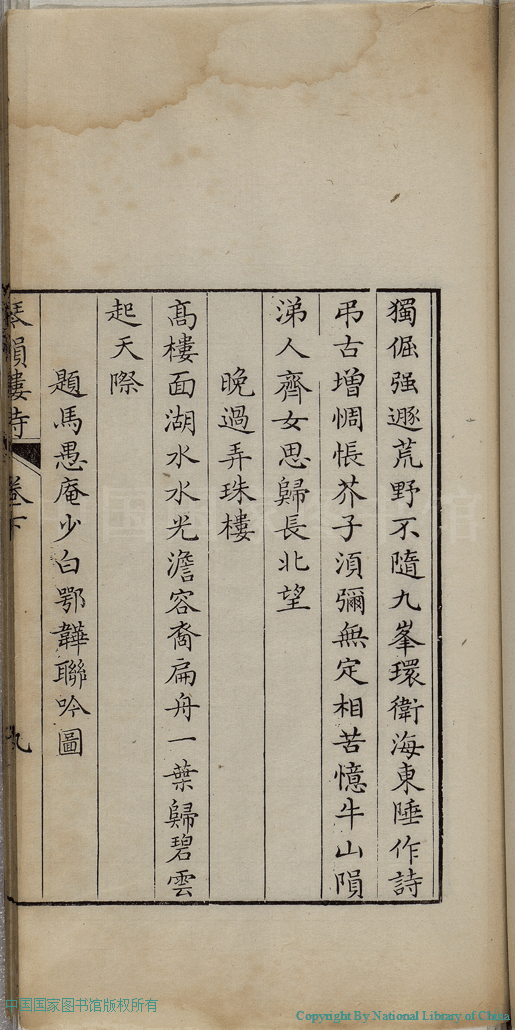 獨倔强遯荒野不隨九峯環衛海東陲作詩
弔古增惆悵芥子湏彌無定相苦憶牛山隕
涕人齊女思歸長北望
晚過弄珠樓
高樓面湖水水光澹容裔扁舟一葉歸碧雲
起天際
題馬愚庵少白鄂韡聯吟圖
琴韻樓詩 卷下 九
中国国家图书馆版权所有
Copyright By National Library of China